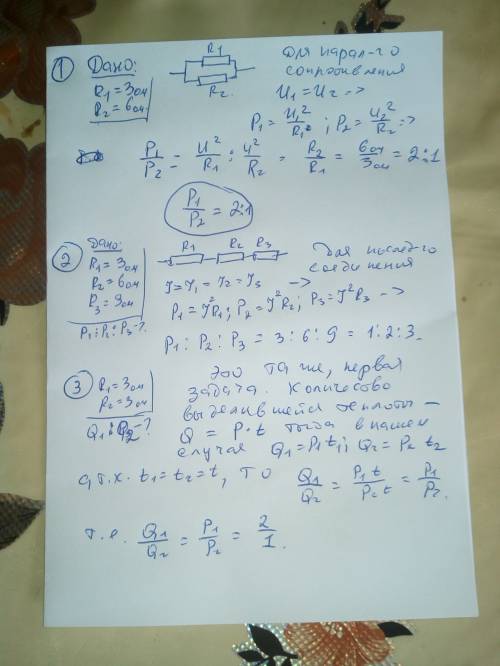 ① Дано:
R₁ = 3 ом
R₂ = 6 ом
R₁
R₂
Для парал-го
сопротивления
U₁ = U₂ =>
P₁ = U₁²/R₁ ; P₂ = U₂²/R₂ =>
P₁/P₂ = U²/R₁ : U²/R₂ = R₂/R₁ = 6 ом/3 ом = 2:1
P₁/P₂ = 2:1
② Дано:
R₁ = 3 ом
R₂ = 6 ом
R₃ = 9 ом
P₁ : P₂ : P₃ - ?
R₁ R₂ R₃
Для послед-го
соединения
I = I₁ = I₂ = I₃ ->
P₁ = I²R₁; P₂ = I²R₂; P₃ = I²R₃ ->
P₁ : P₂ : P₃ = 3 : 6 : 9 = 1 : 2 : 3.
③ R₁ = 3 ом
R₂ = 3 ом
Q₁ : Q₂ - ?
Это та же, первая
задача. Количество
выделившейся теплоты –
Q = P · t тогда в нашем
случае Q₁ = P₁ t₁; Q₂ = P₂ t₂
а, т.к. t₁ = t₂ = t, то Q₁/Q₂ = P₁ t/P₂ t = P₁/P₂.
т.е. Q₁/Q₂ = P₁/P₂ = 2/1.